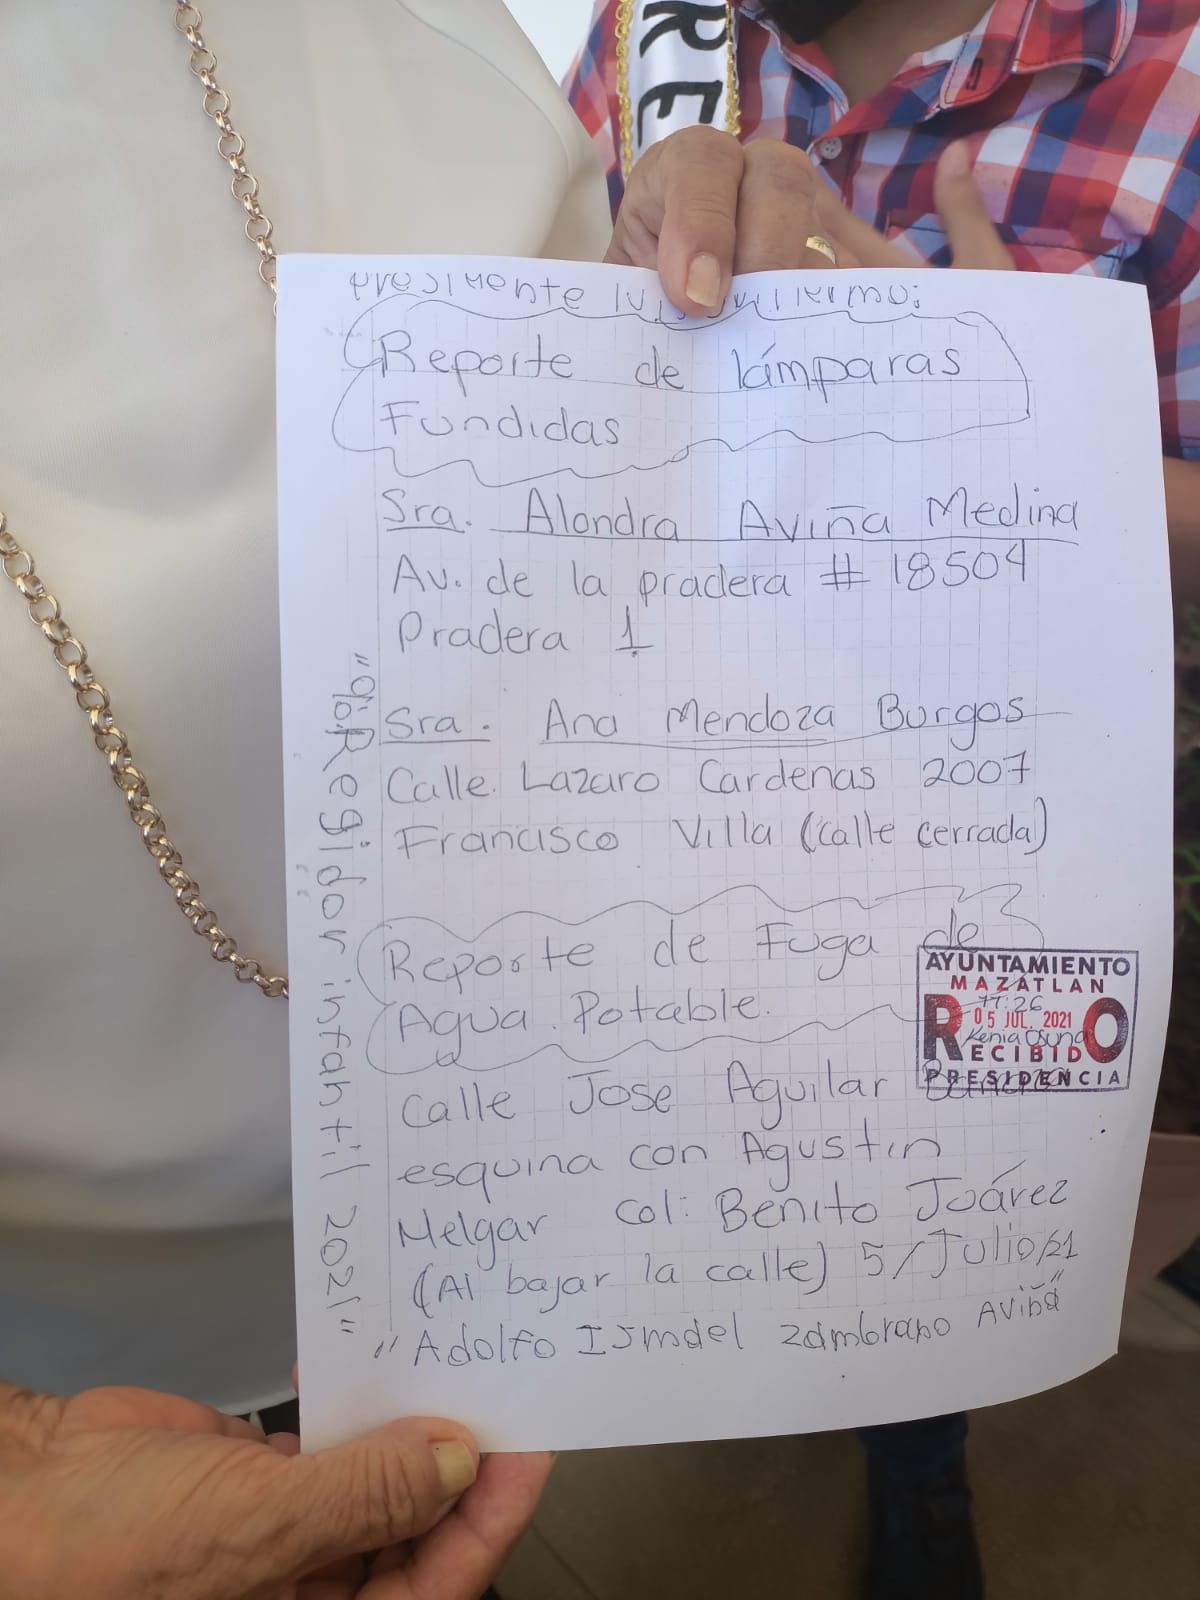 RE
presidente Luis Guillermo:
Reporte de lámparas
Fundidas
Sra. Alondra Aviña Medina
Av. de la pradera # 18504
Pradera 1
Sra. Ana Mendoza Burgos
Calle Lazaro Cardenas 2007
Francisco Villa (calle cerrada)
Reporte de Fuga de
Agua Potable.
Calle Jose Aguilar
esquina con Agustin
Melgar Col: Benito Juárez
(Al bajar la calle) 5/Julio/21
"Adolfo Ismael Zambrano Aviña"
"9º Regidor infantil 2021"
AYUNTAMIENTO
MAZATLAN
11:26
05 JUL. 2021
Kenia Osuna
RECIBIDO
PRESIDENCIA